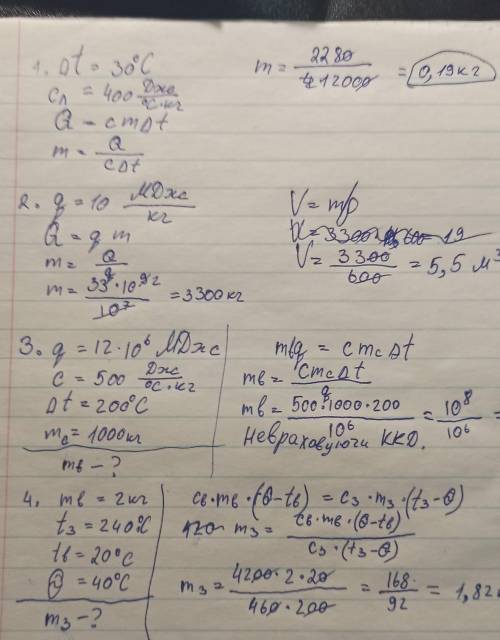 1. Δt = 30°C
c_л = 400 Дж/°C·кг
Q = cmΔt
m = Q/cΔt
m = 2280/12000 = 0,19 кг
2. q = 10 МДж/кг
Q = q m
m = Q/q
m = 33·10⁹/10⁷ = 3300 кг
V = m/ρ
V = 3300/600 = 5,5 м³
3. q = 12·10⁶ МДж
c = 500 Дж/°C·кг
Δt = 200°C
m_c = 1000 кг
m_в - ?
m_в q = c m_c Δt
m_в = c m_c Δt/q
m_в = 500·1000·200/10⁶ = 10⁸/10⁶ =
Невраховуючи ККД.
4. m_в = 2 кг
t₃ = 240°C
t_в = 20°C
Θ = 40°C
m₃ - ?
c_в·m_в·(Θ-t_в) = c₃·m₃·(t₃-Θ)
m₃ = c_в·m_в·(Θ-t_в)/c₃·(t₃-Θ)
m₃ = 4200·2·20/460·200 = 168/92 = 1,82